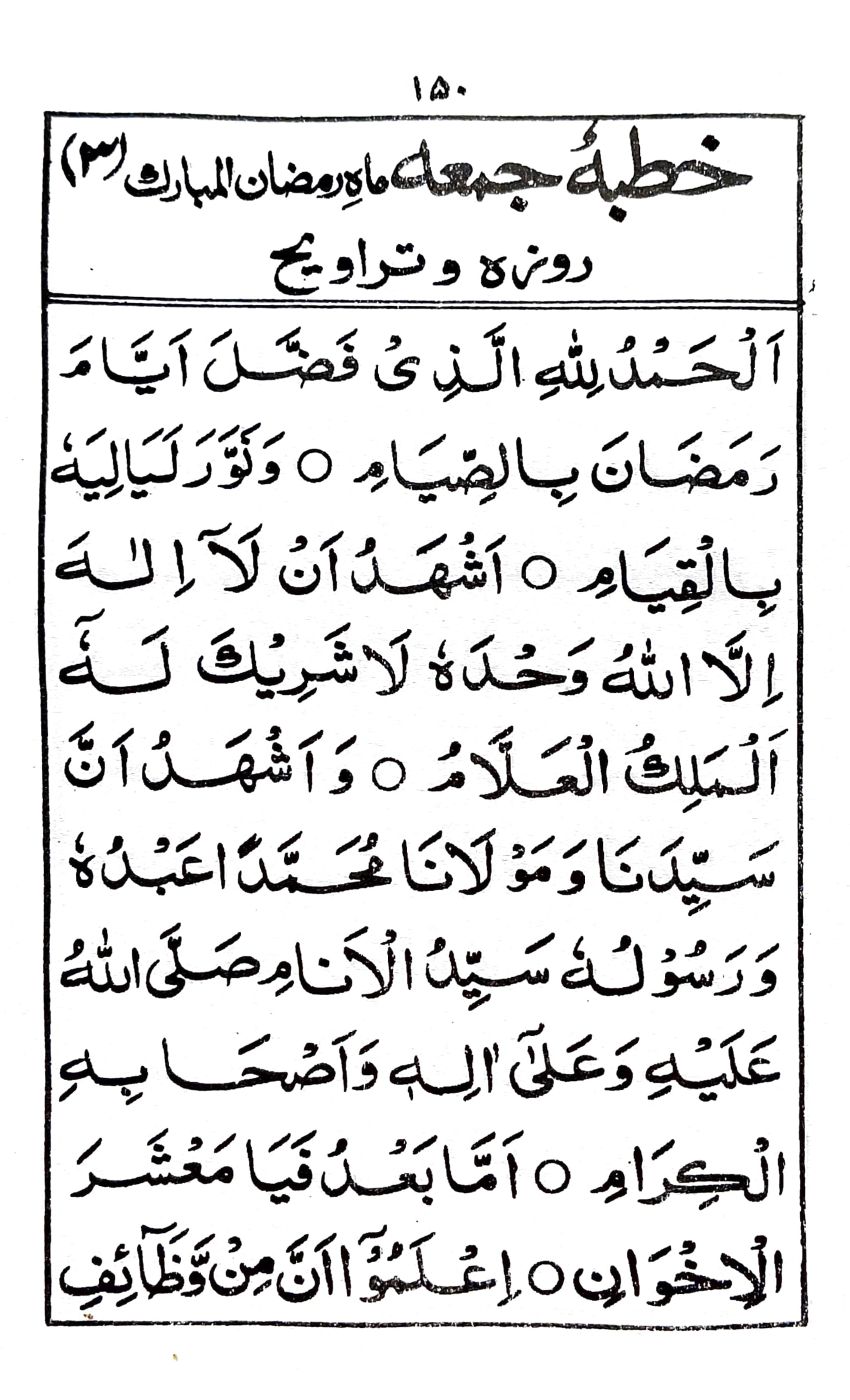 ۱۵۰
خطبۂ جمعہ ماہِ رمضان المبارک (۳)
روزہ و تراویح
اَلْحَمْدُ لِلّٰهِ الَّذِیْ فَضَّلَ اَیَّامَ
رَمَضَانَ بِالصِّیَامِ ○ وَنَوَّرَ لَیَالِیَهٗ
بِالْقِیَامِ ○ اَشْهَدُ اَنْ لَآ اِلٰهَ
اِلَّا اللّٰهُ وَحْدَهٗ لَا شَرِیْكَ لَهٗٓ
اَلْمَلِكُ الْعَلَّامُ ○ وَ اَشْهَدُ اَنَّ
سَیِّدَنَا وَ مَوْلَانَا مُحَمَّدًا عَبْدُهٗ
وَ رَسُوْلُهٗ سَیِّدُ الْاَنَامِ صَلَّی اللّٰهُ
عَلَیْهِ وَعَلٰٓی اٰلِهٖ وَاَصْحَابِهِ
الْكِرَامِ ○ اَمَّا بَعْدُ فَیَا مَعْشَرَ
الْاِخْوَانِ ○ اِعْلَمُوْٓا اَنَّ مِنْ وَّظَآئِفِ